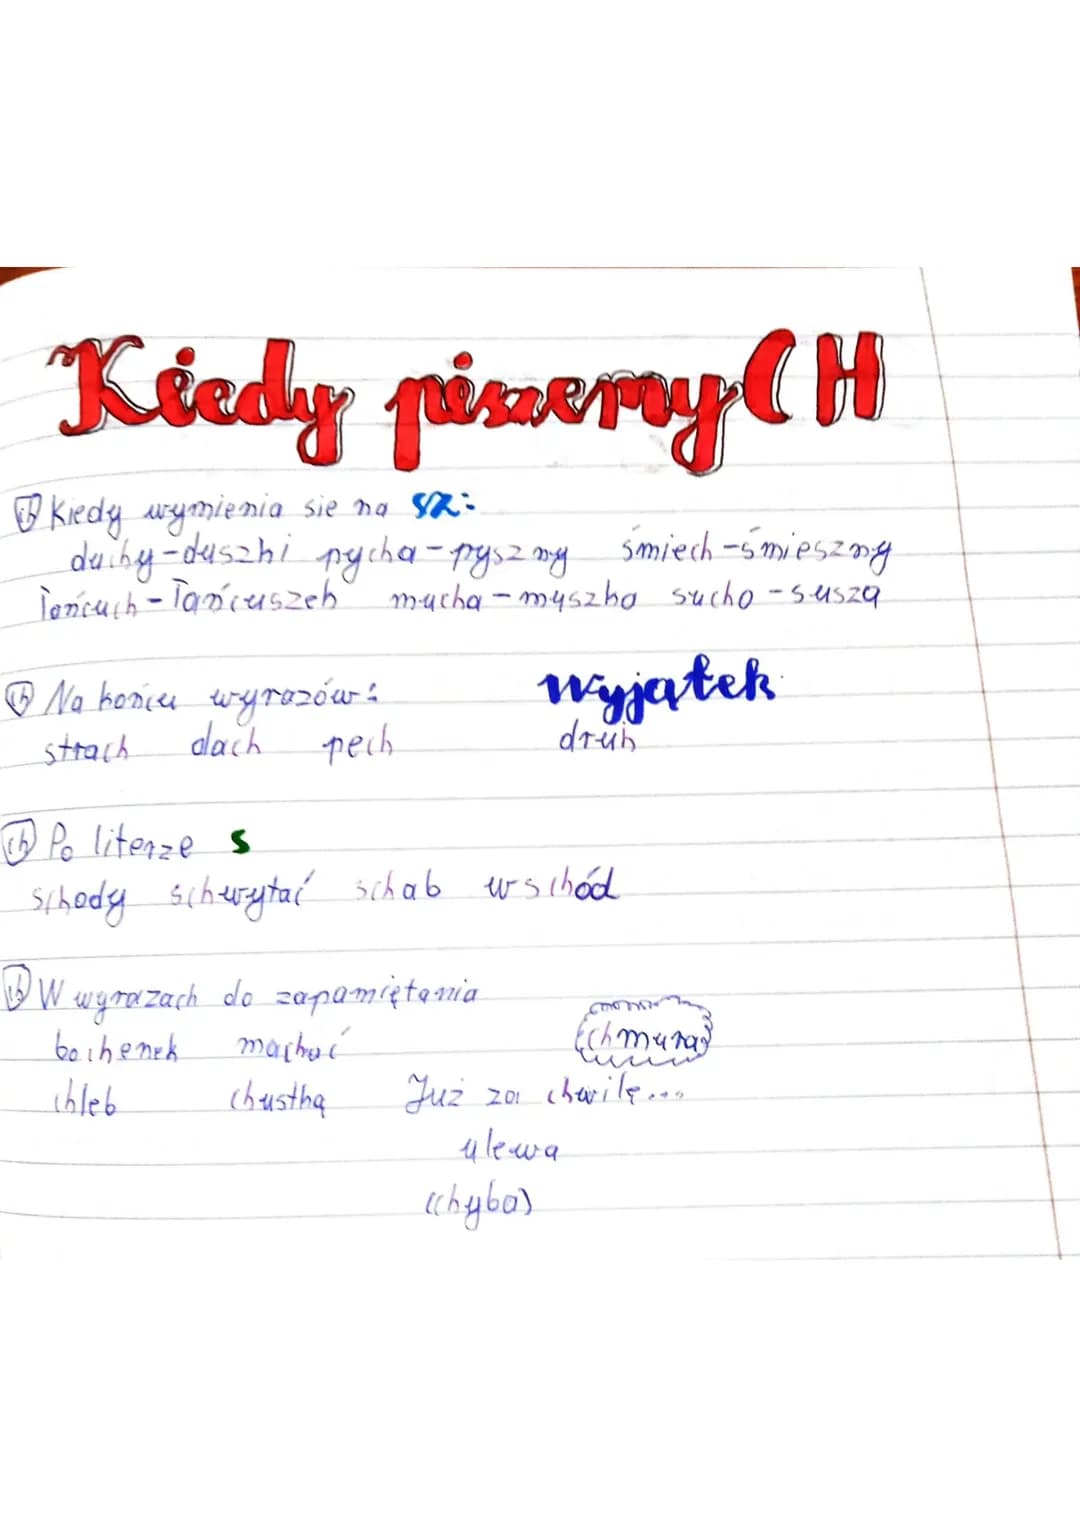 Kiedy piszemy CH
ch Kiedy wymienia sie na sz:
duchy-duszki pycha-pyszny śmiech-śmieszny
łańcuch-łańcuszek mucha-muszka sucho-susza
ch Na końcu wyrazów: wyjątek
strach dach pech druh
ch Po literze s
schody schwytać schab wschód
ch W wyrazach do zapamiętania
bochenek machać chmura
chleb chustka Już za chwilę...
ulewa
(chyba)